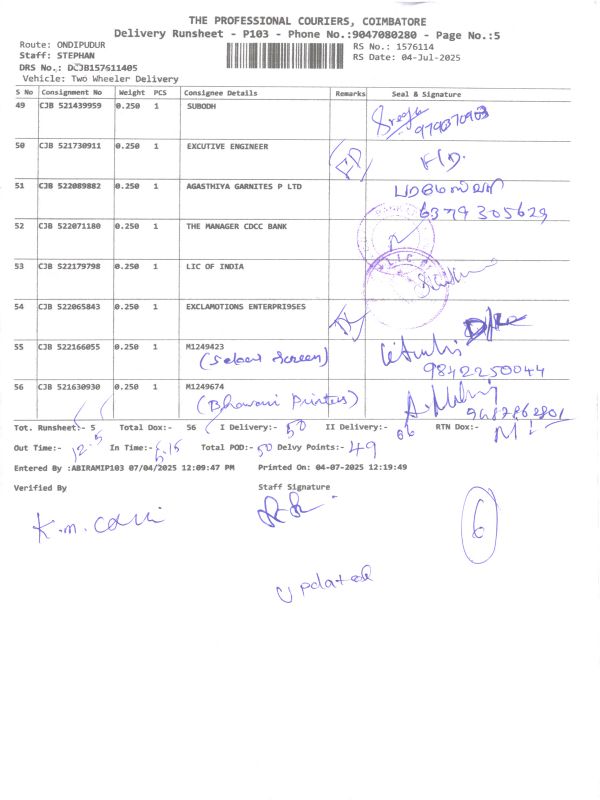 THE PROFESSIONAL COURIERS, COIMBATORE
Delivery Runsheet - P103 - Phone No.:9047080280 - Page No.:5
Route: ONDIPUDUR RS No.: 1576114
Staff: STEPHAN RS Date: 04-Jul-2025
DRS No.: DCJB157611405
Vehicle: Two Wheeler Delivery
S No Consignment No Weight PCS Consignee Details Remarks Seal & Signature
49 CJB 521439959 0.250 1 SUBODH
9790370903
50 CJB 521730911 0.250 1 EXCUTIVE ENGINEER
51 CJB 522089882 0.250 1 AGASTHIYA GARNITES P LTD
6379305629
52 CJB 522071180 0.250 1 THE MANAGER CDCC BANK
53 CJB 522179798 0.250 1 LIC OF INDIA
54 CJB 522065843 0.250 1 EXCLAMOTIONS ENTERPRI9SES
55 CJB 522166055 0.250 1 M1249423
(Select Screen)
9842250044
56 CJB 521630930 0.250 1 M1249674
(Bhawani Printers)
Tot. Runsheet:- 5 Total Dox:- 56 I Delivery:- 50 II Delivery:- 06 RTN Dox:-
Out Time:- 12.5 In Time:- 5.15 Total POD:- 50 Delvy Points:- 49
Entered By :ABIRAMIP103 07/04/2025 12:09:47 PM Printed On: 04-07-2025 12:19:49
Verified By Staff Signature
6
Updated